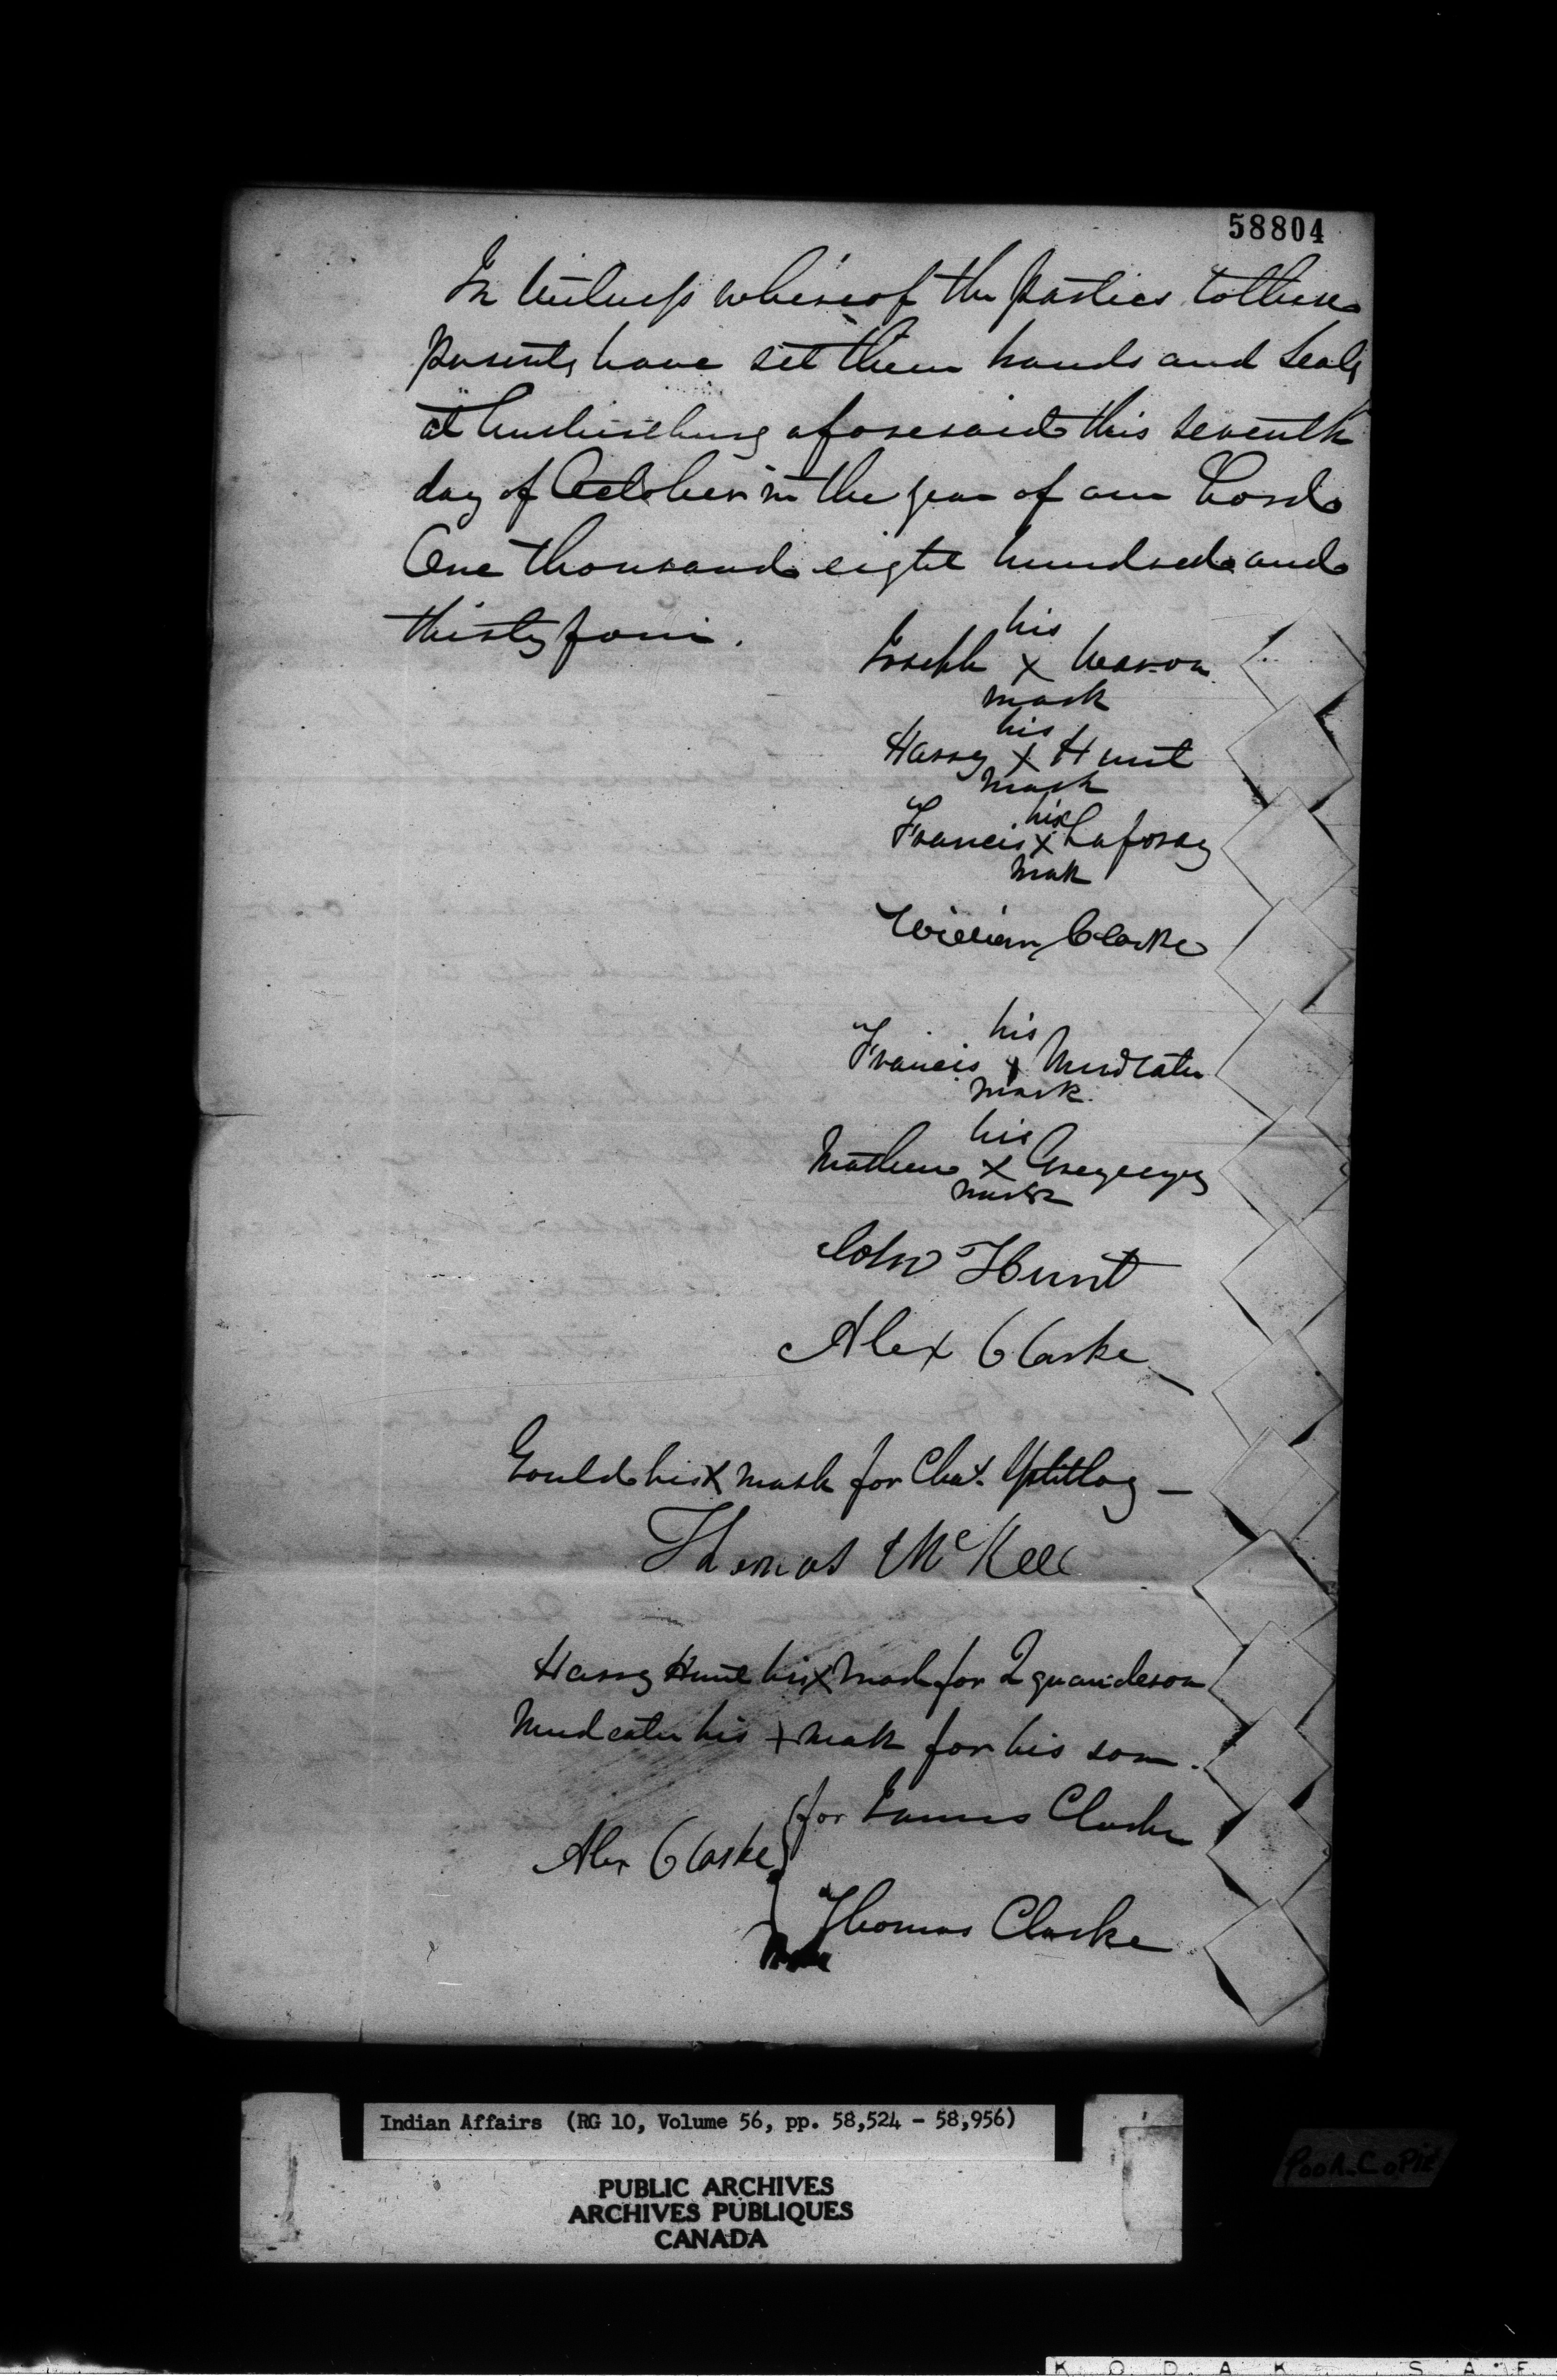 58804
In Witness whereof the parties to these
presents have set their hands and seals
at Amherstburg aforesaid this seventh
day of October in the year of our Lord
One thousand eight hundred and
thirty four.
his
Joseph x Warrow
mark
his
Harry x Hunt
mark
his
Francis x Laforay
mark
William Clarke
his
Francis x Mudeater
mark.
his
Mathew x
mark
John Hunt
Alex Clarke
Gould his x mark for Chas. Splitlog —
Thomas McKee
Harry Hunt his x mark for
Mudeater his + mark for his son.
for James Clarke
Alex Clarke
Thomas Clarke
Indian Affairs (RG 10, Volume 56, pp. 58,524 - 58,956)
PUBLIC ARCHIVES
ARCHIVES PUBLIQUES
CANADA
Poor Copie
KODAK SAF